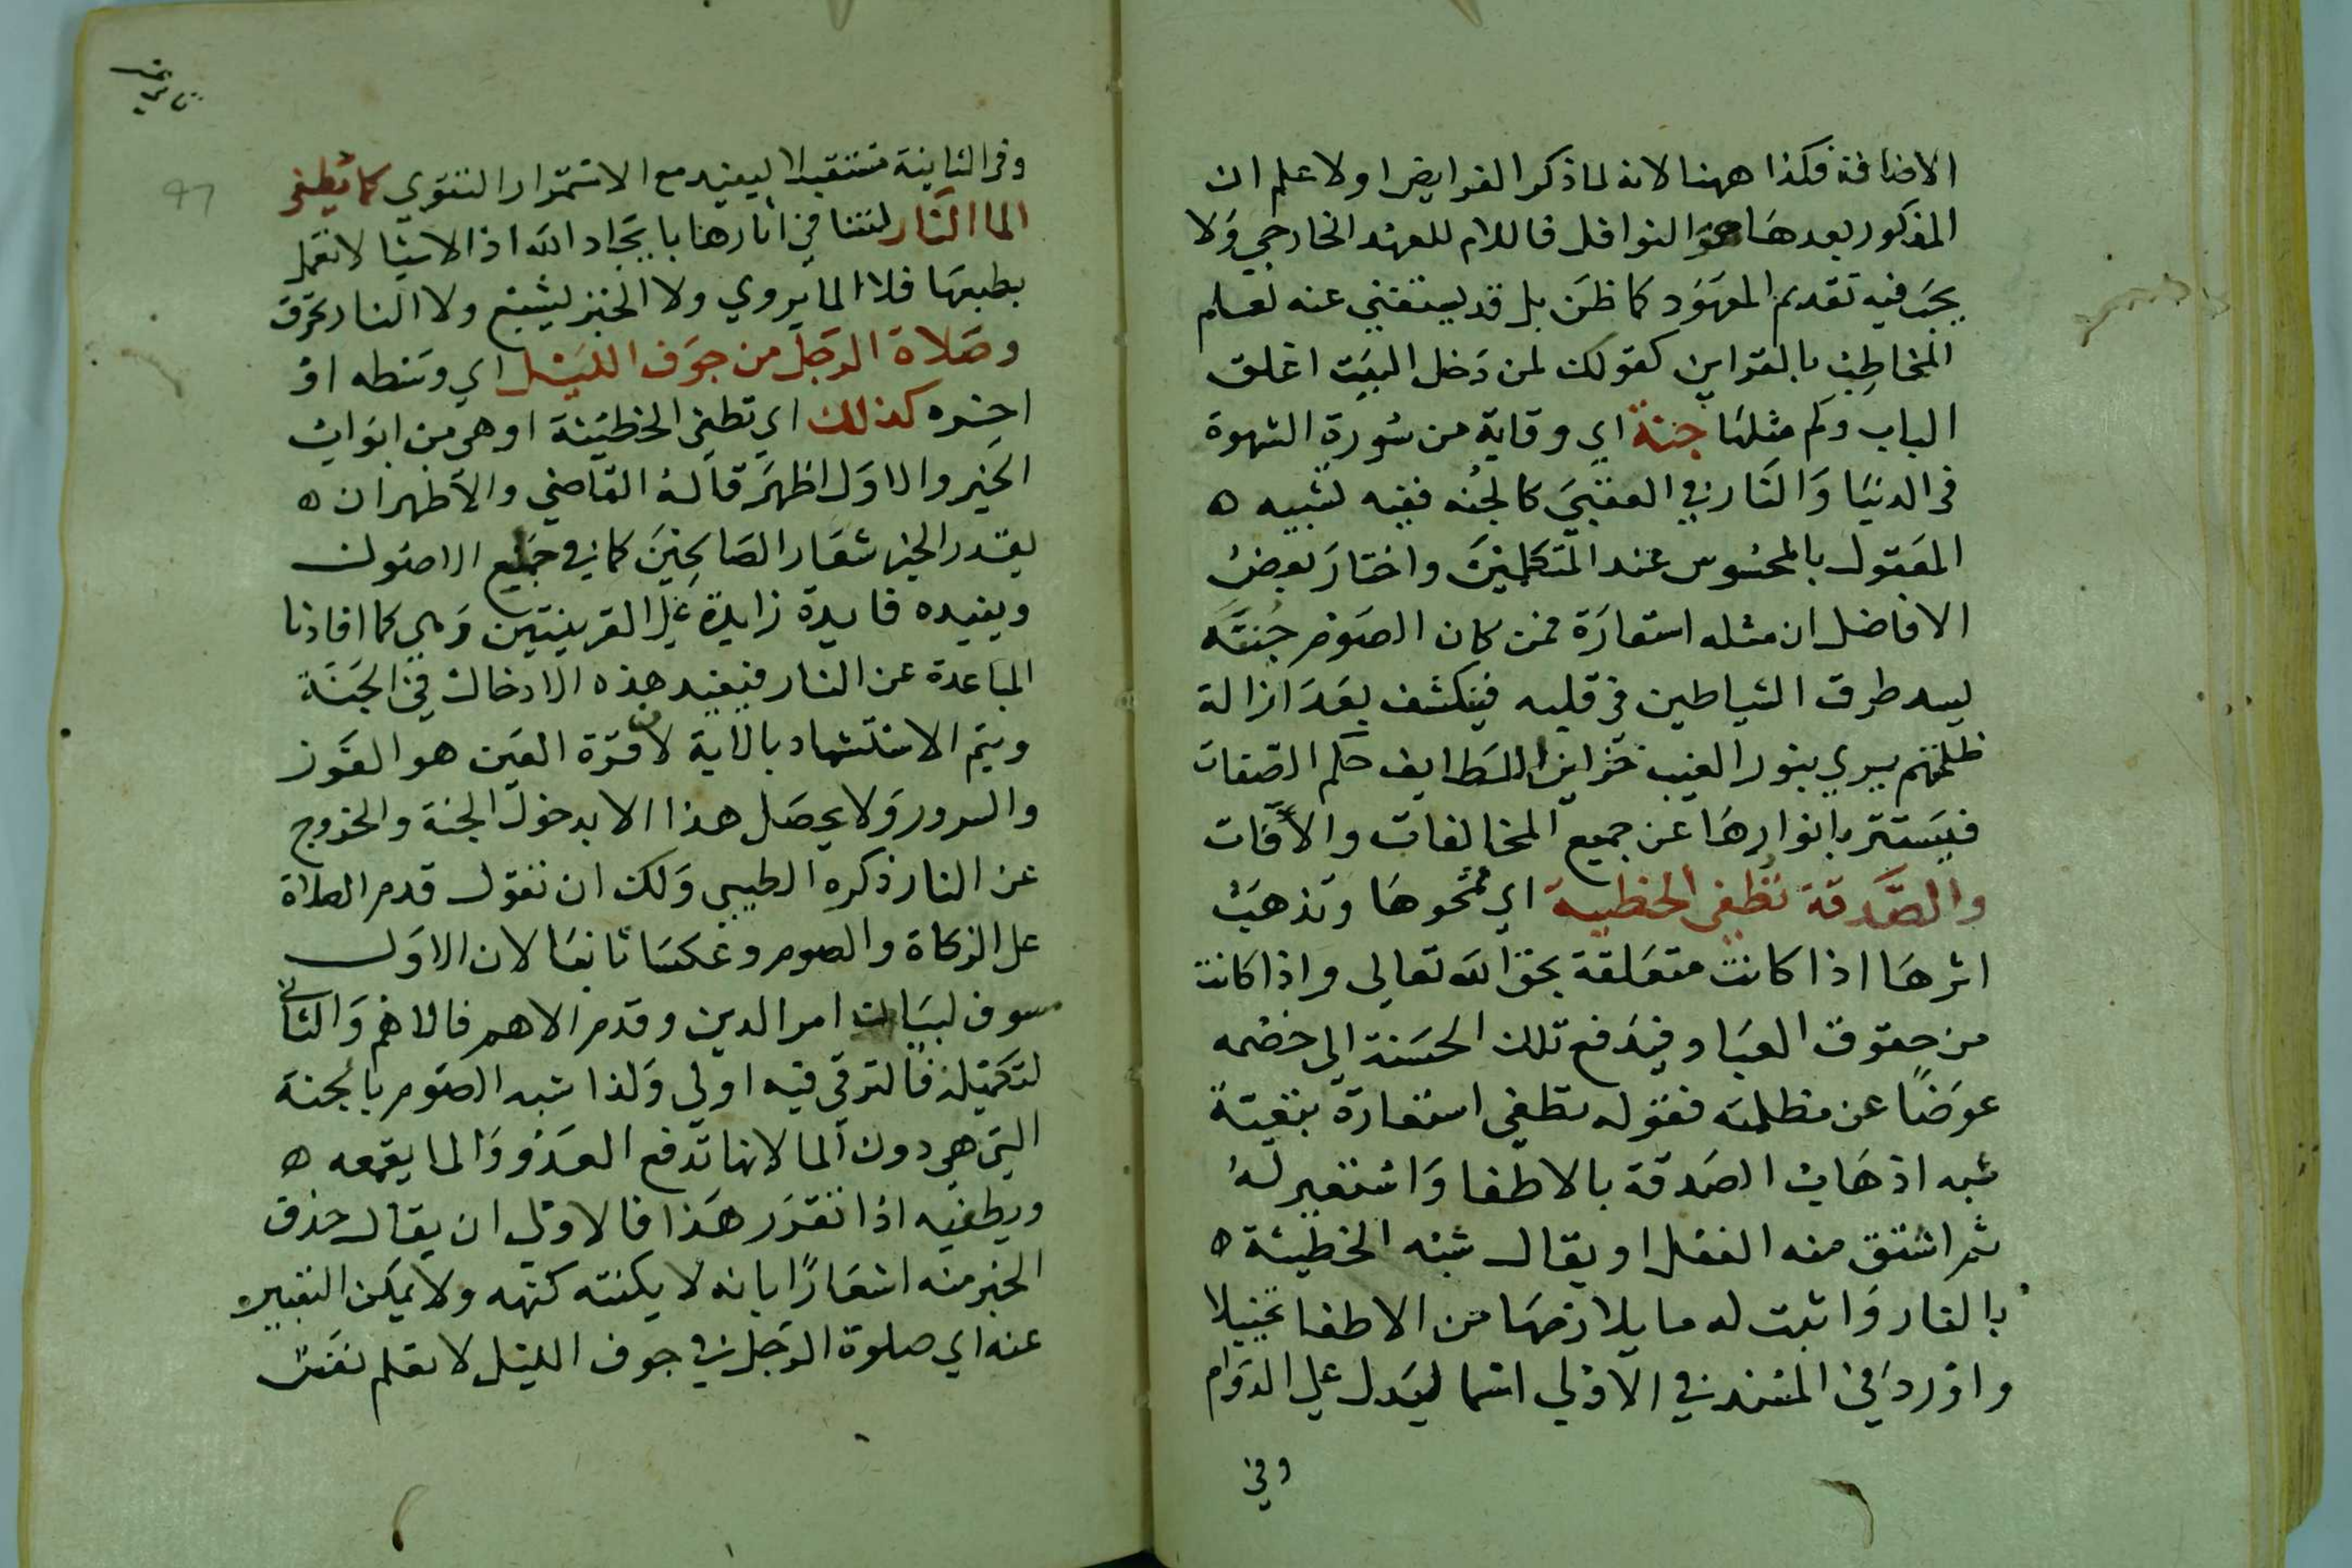 الاضافة فكذا ههنا لانه لما ذكر الفرايض اولا علم ان
المذكور بعدها هو النوافل فاللام للعهد الخارجي ولا
يجب فيه تقديم المعهود كما ظن بل قد يستغني عنه لعلم
المخاطب بالقراين كقولك لمن دخل البيت اغلق
الباب وكم مثلها جنة اي وقاية من سورة الشهوة
في الدنيا والنار في العقبي كالجنه ففيه تشبيه ه
المعقول بالمحسوس عند المتكلمين واختار بعض
الافاضل ان مثله استعارة فمن كان الصوم جنته
يسد طرق الشياطين في قلبه فينكشف بعد ازالة
ظلمتهم يري بنور الغيب خزاين اللطايف حكم الصفات
فيستتر بانوارها عن جميع المخالفات والآفات
والصدقة تطفي الخطيية اي تمحوها وتذهب
اثرها اذا كانت متعلقة بحق الله تعالى واذا كانت
من حقوق العباد فيدفع تلك الحسنة الى خصمه
عوضا عن مظلمته فقوله تطفي استعارة تبعية
شبه اذهاب الصدقة بالاطفا واستعير له
ثم اشتق منه الفعل او يقال شبه الخطيئة ه
بالنار واثبت له ما يلازمها من الاطفا تخييلا
واورد في المسند في الاولى اسما ليدل على الدوام
وفي
وفي الثانية مستقبلا ليفيد مع الاستمرار التقوي كما يطفي
الما النار لتنافي اثارها بايجاد الله اذ الاشيا لا تعمل
بطبعها فلا الما يروي ولا الخبز يشبع ولا النار تحرق
وصلاة الرجل من جوف الليل اي وسطه او
اخره كذلك اي تطفي الخطيئة او هي من ابواب
الخير والاول اظهر قاله القاضي والاظهر ان ه
يقدر الخبر شعار الصالحين كما في جميع الاصول
ويفيده فايدة زايدة على القرينتين وهي كما افادتا
المباعدة عن النار فيفيد هذه الادخال في الجنة
ويتم الاستشهاد بالاية لان قرة العين هو الفوز
والسرور ولا يحصل هذا الا بدخول الجنة والخروج
عن النار ذكره الطيبي ولك ان تقول قدم الصلاة
على الزكاة والصوم وعكسا ثانيا لان الاول
سوف لبيان امر الدين وقدم الاهم فالاهم والثاني
لتكميله فالترقي فيه اولى ولذا شبه الصوم بالجنة
التي هي دون الما لانها تدفع العدو والما يقمعه ه
ويطفيه اذا تقرر هذا فالاولى ان يقال حذف
الخبر منه اشعارا بانه لا يكتنه كنهه ولا يمكن التعبير
عنه اي صلوة الرجل في جوف الليل لا تعلم نفس